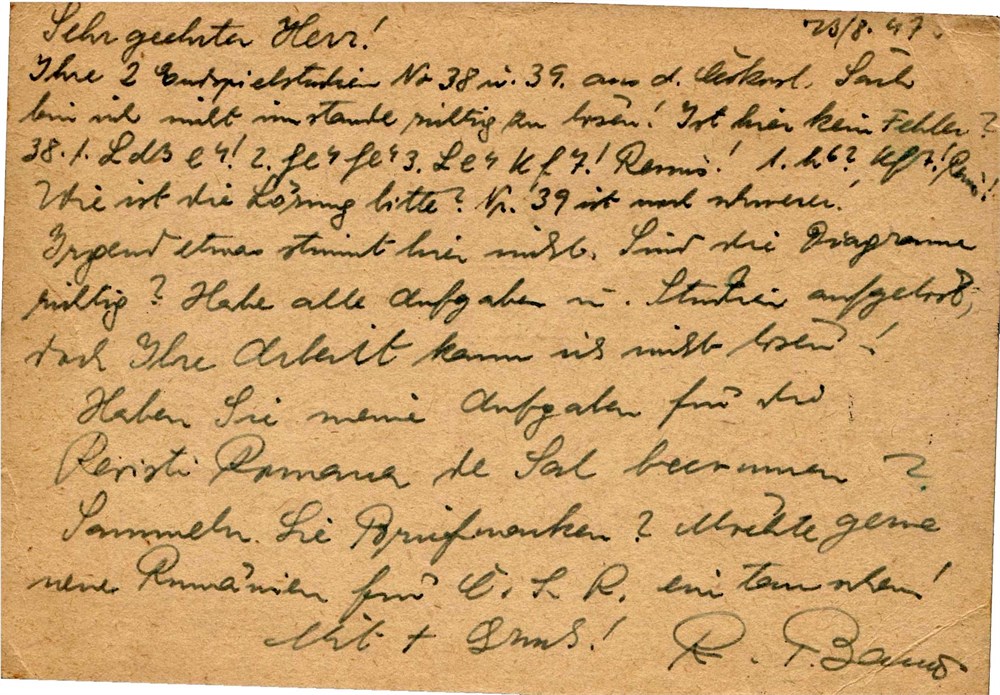 Sehr geehrter Herr! 23/8. 47.
Ihre 2 Endspielstudien Nr 38 u. 39. aus d. Šach
bin ich nicht imstande richtig zu lösen! Ist hier kein Fehler?
38. 1. Ld3 e4! 2. fe4 fe4 3. Le4 Kf7! Remis! 1. h6? Kf7! Remis!
Wie ist die Lösung bitte? Nr. 39 ist noch schwerer!
Irgend etwas stimmt hier nicht. Sind die Diagramme
richtig? Habe alle Aufgaben u. Studien aufgelöst,
doch Ihre Arbeit kann ich nicht lösen!
Haben Sie meine Aufgaben für die
Revisti Romana de Sah bekommen?
Sammeln Sie Briefmarken? Möchte gerne
neue Rumänien für Č. S. R. eintauschen!
Mit + Gruß!